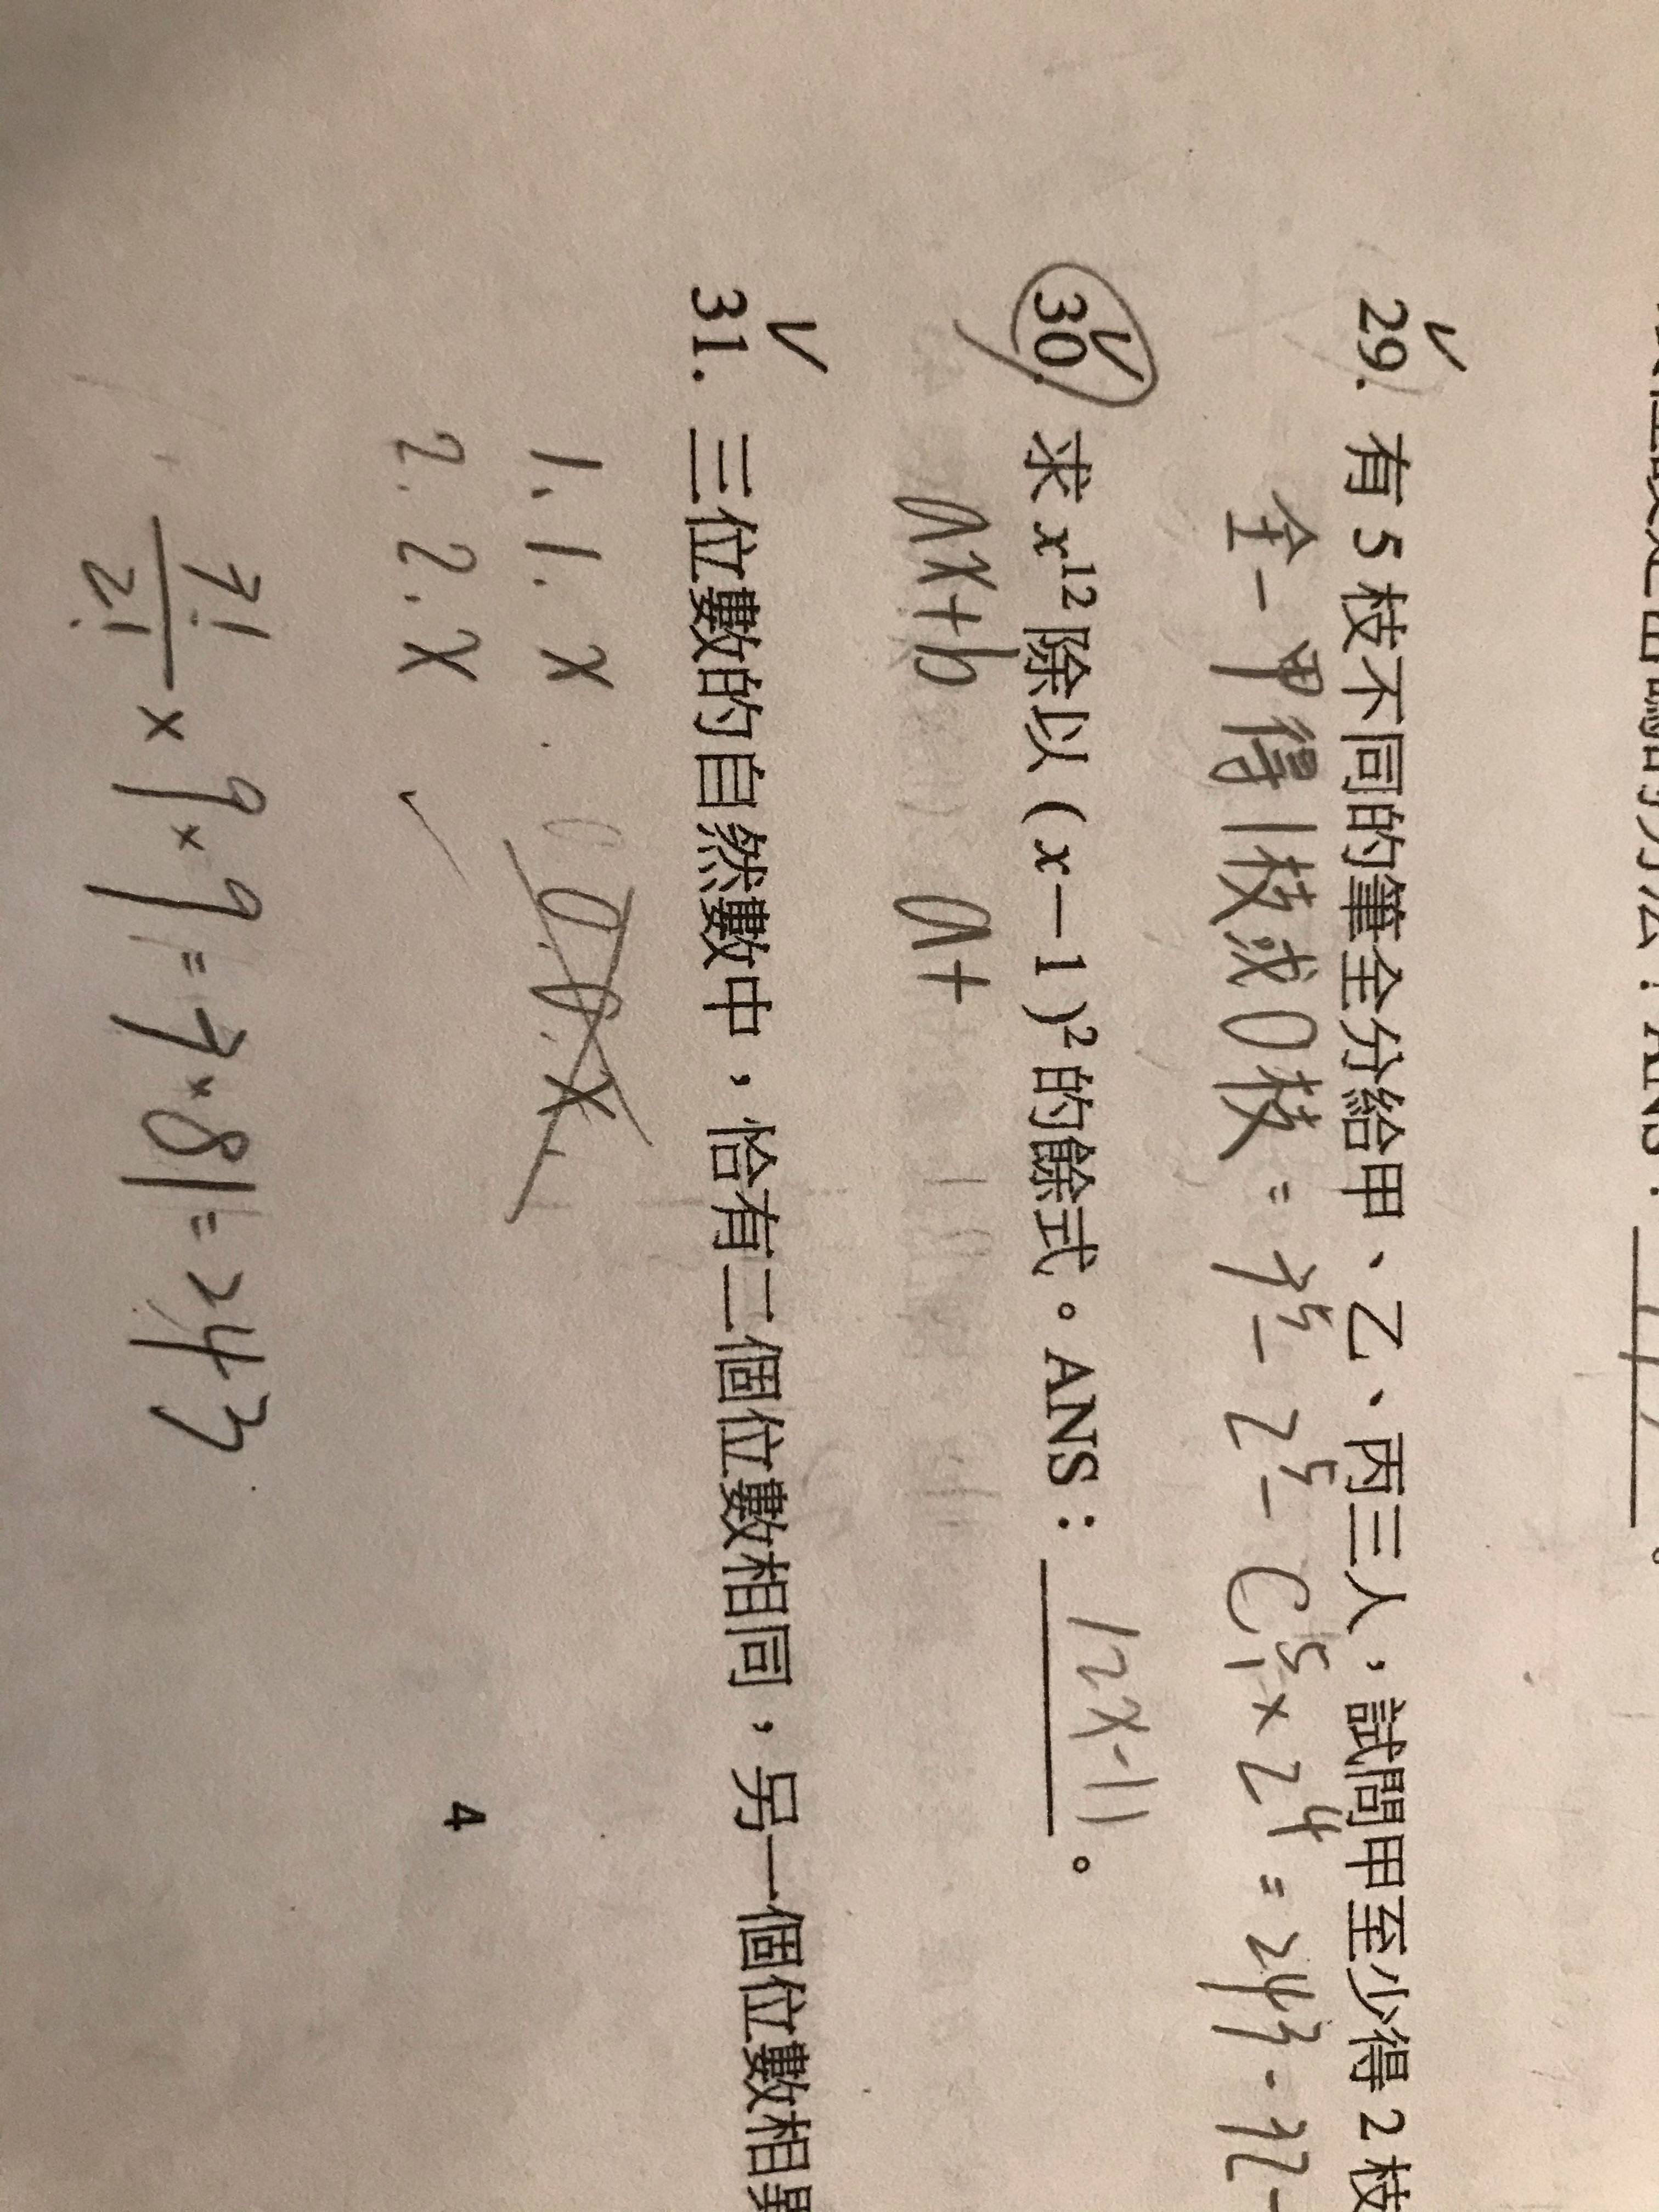 29. 有 5 枝不同的筆全分給甲、乙、丙三人，試問甲至少得 2 枝
全－甲得1枝或0枝 = 3⁵ - 2⁵ - C⁵₁ × 2⁴ = 243 - 32 -
30. 求 x¹² 除以 (x－1)² 的餘式。ANS： 12x-11 。
ax+b a+
31. 三位數的自然數中，恰有二個位數相同，另一個位數相異
1. 1. x 0. 0. x
2. 2. x
3!/2! × 9 × 9 = 3 × 81 = 243
4